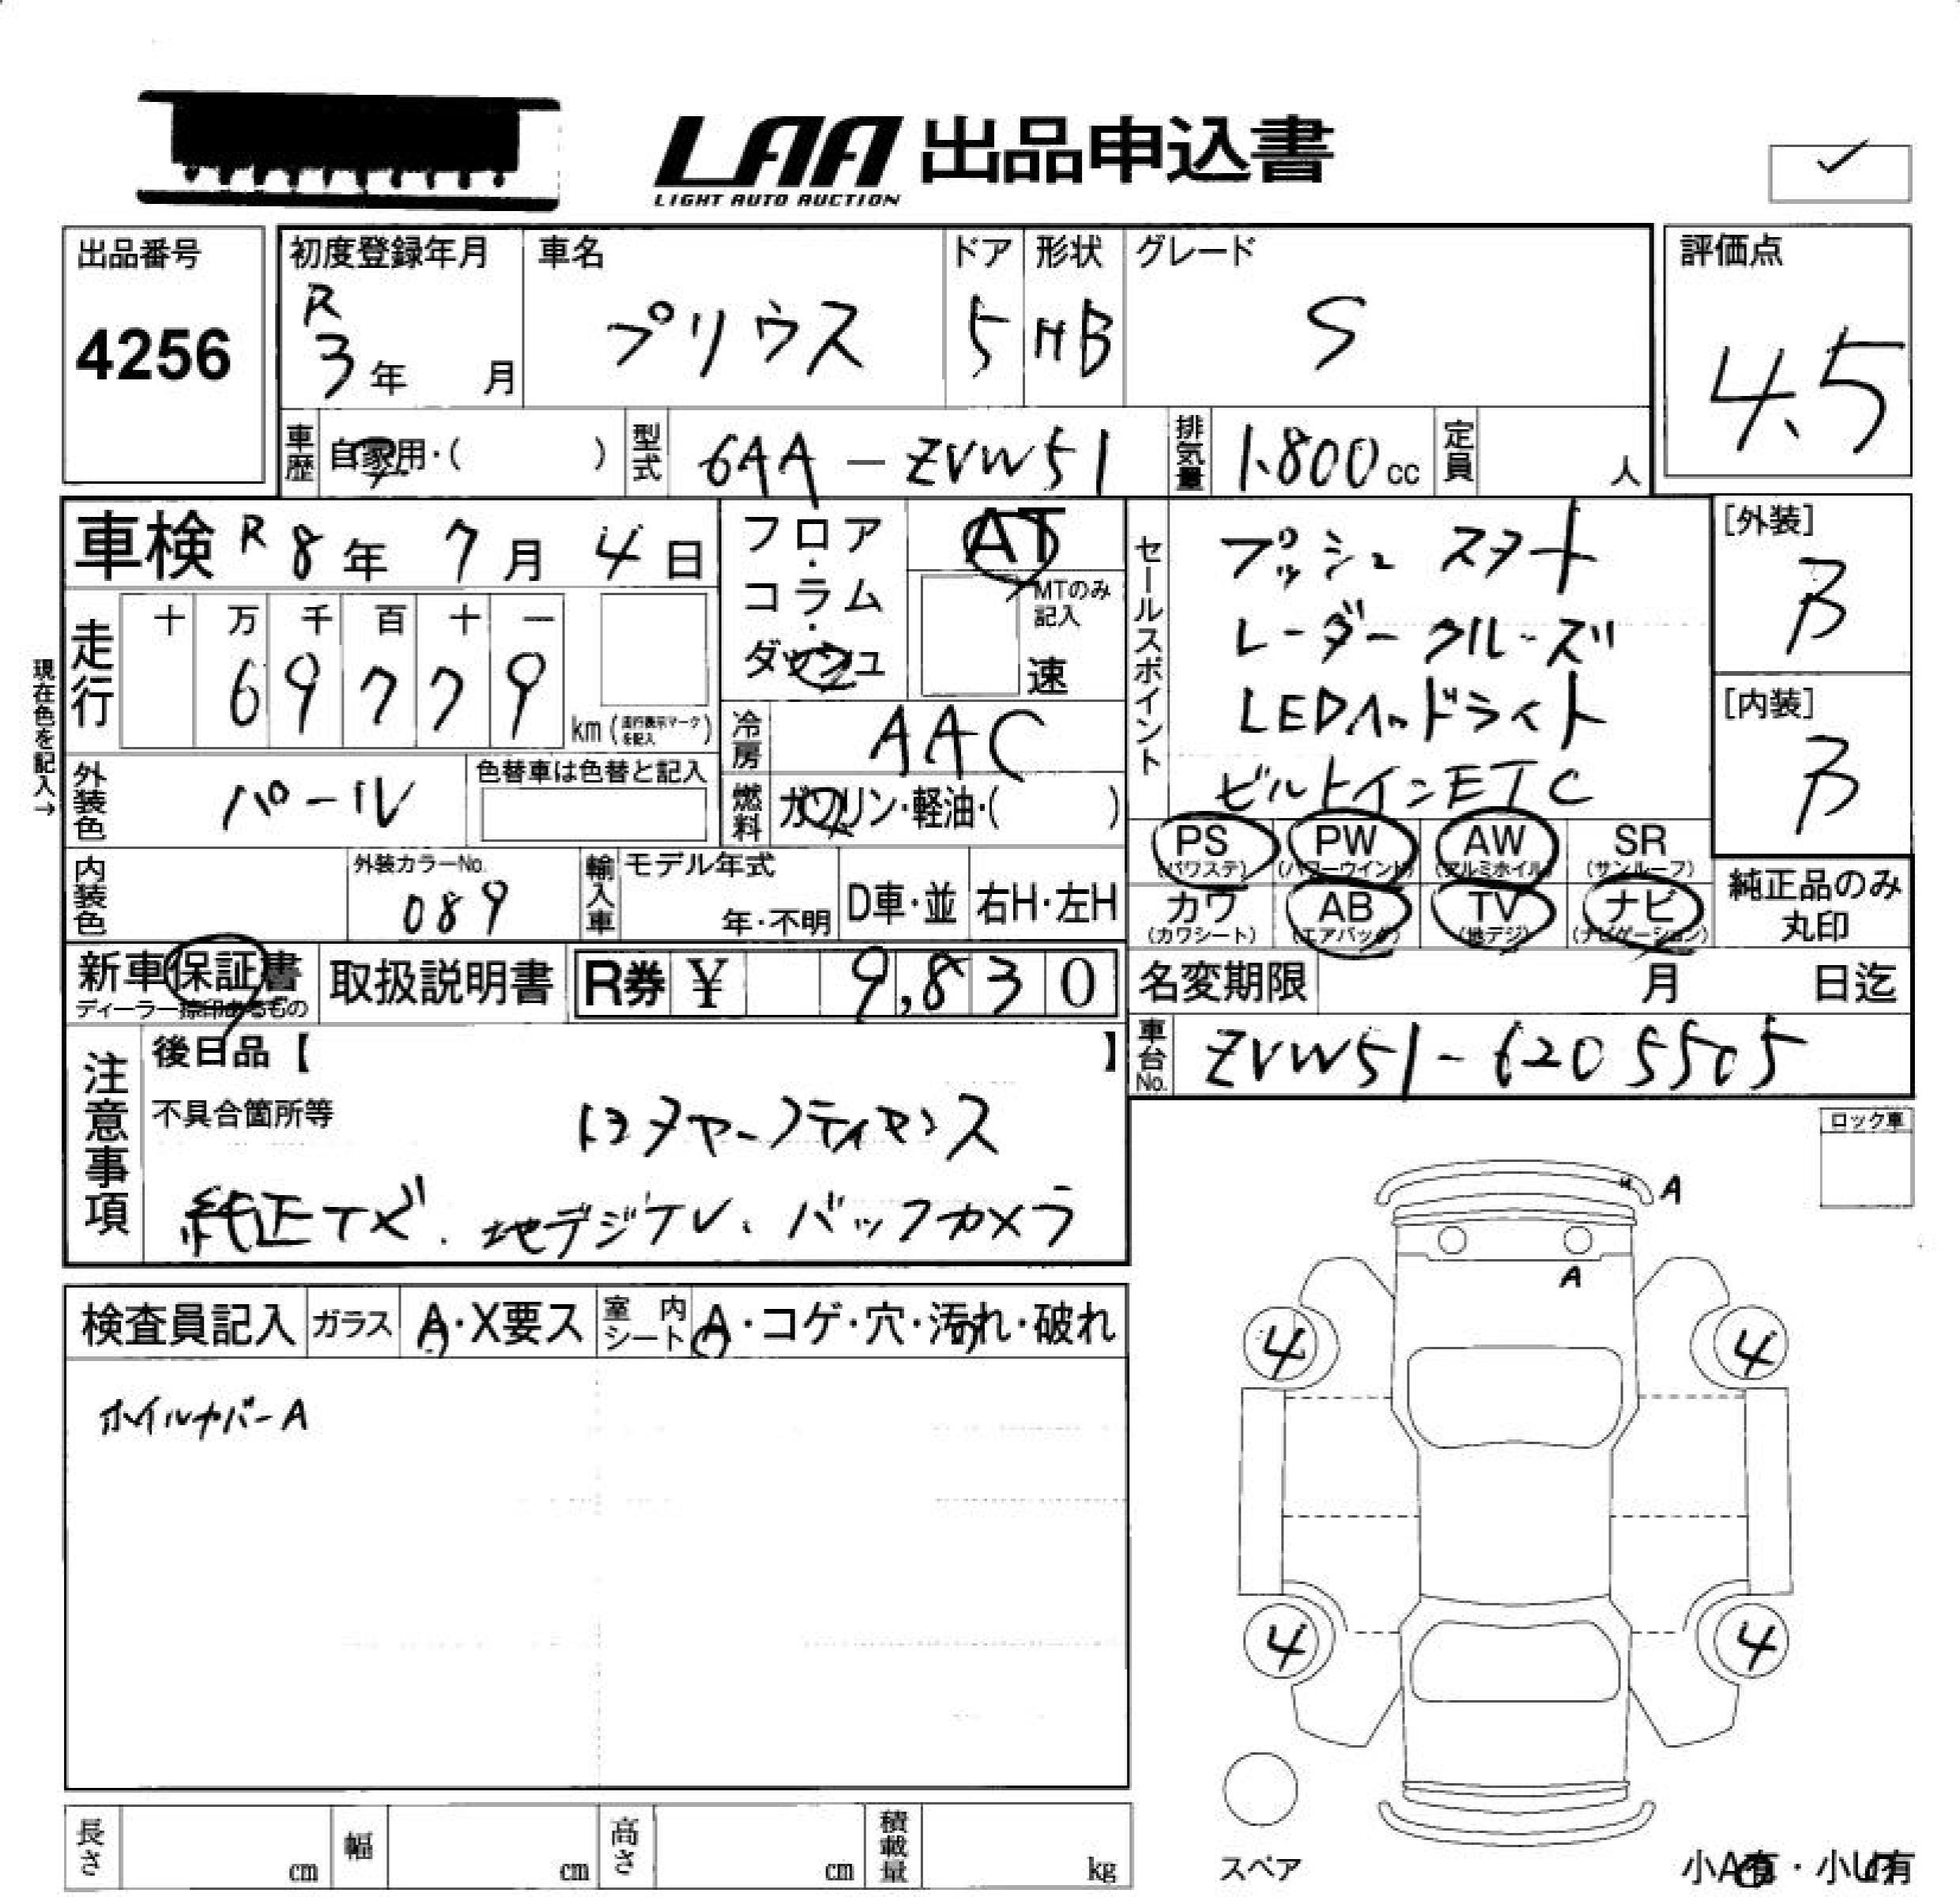 LAA 出品申込書
LIGHT AUTO AUCTION
出品番号
4256
初度登録年月
R
3年 月
車名
プリウス
ドア
5
形状
HB
グレード
S
評価点
4.5
車歴
自家用・( )
型式
6AA-ZVW51
排気量
1.800cc
定員
人
車検 R8年 7月 4日
フロア・コラム・ダッシュ
AT
MTのみ記入
速
セールスポイント
プッシュスタート
レーダークルーズ
LEDヘッドライト
ビルトインETC
[外装]
B
[内装]
B
現在色を記入→
走行
十 万 千 百 十 一
6 9 7 7 9
km(走行表示マークを記入)
冷房
AAC
外装色
パール
色替車は色替と記入
燃料
ガソリン・軽油・( )
内装色
外装カラーNo.
089
輸入車
モデル年式
年・不明
D車・並
右H・左H
PS (パワステ)
PW (パワーウインド)
AW (アルミホイル)
SR (サンルーフ)
カワ (カワシート)
AB (エアバッグ)
TV (地デジ)
ナビ (ナビゲーション)
純正品のみ
丸印
新車保証書
ディーラー捺印あるもの
取扱説明書
R券 ¥ 9,830
名変期限 月 日迄
車台No.
ZVW51-6205505
注意事項
後日品【 】
不具合箇所等
純正ナビ、地デジTV、バックカメラ
ロック車
A
A
検査員記入
ガラス
A・X要ス
室内シート
A・コゲ・穴・汚れ・破れ
ホイルカバーA
4
4
4
4
スペア
小A有・小U有
長さ cm
幅 cm
高さ cm
積載量 kg